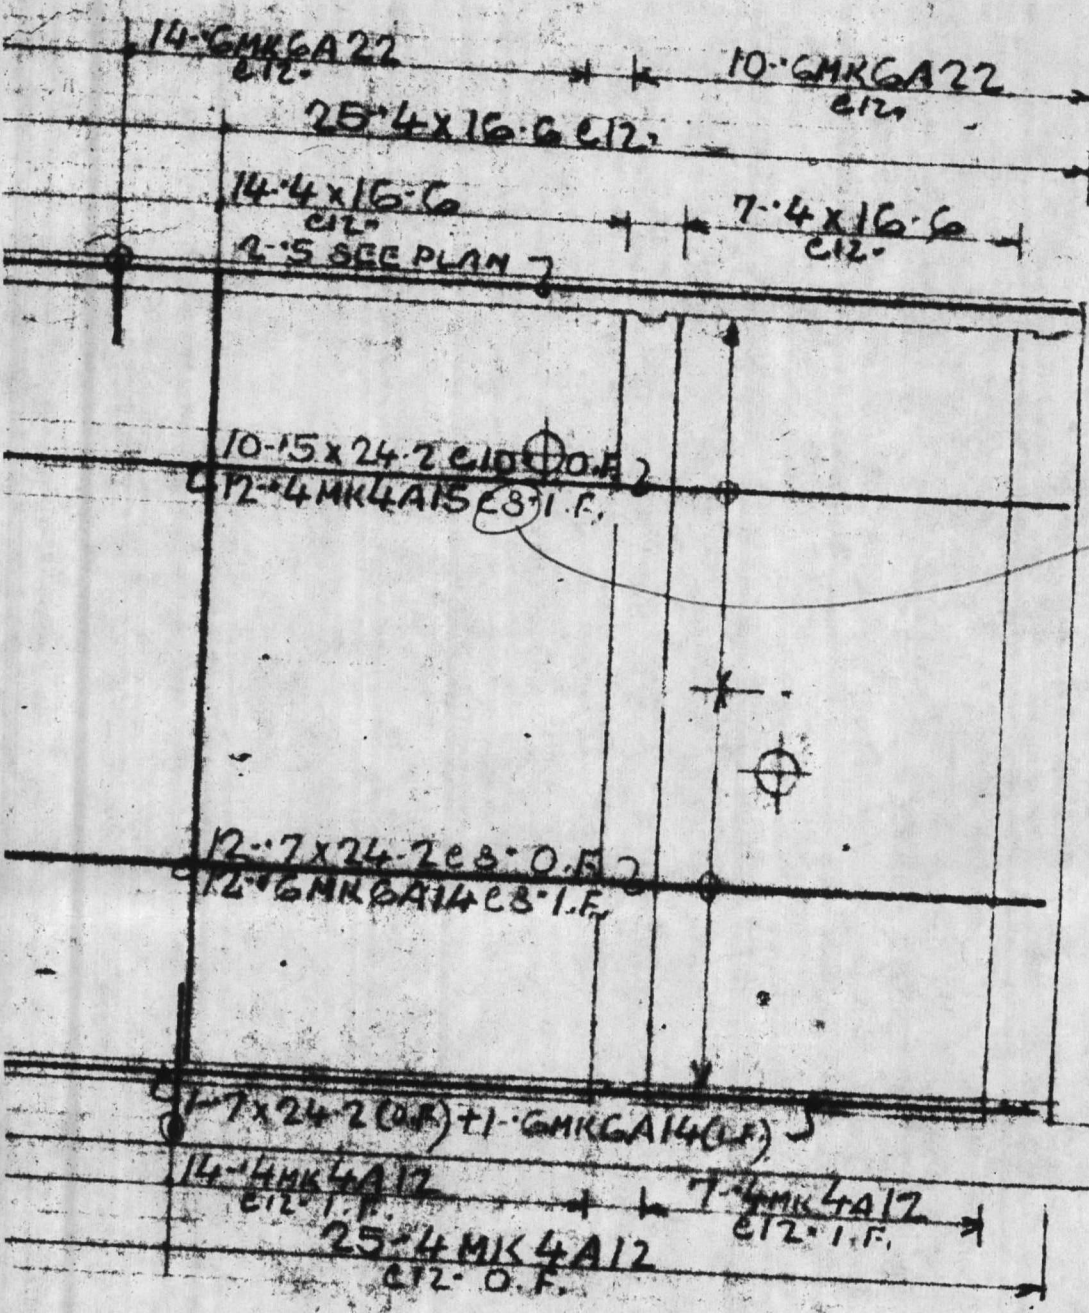 14-·6MK6A22
@12·
10-·6MK6A22
@12·
25-·4x16·6 @12·
14-·4x16·6
@12·
7-·4x16·6
@12·
2-·5 SEE PLAN
10-·5x24·2 @10 O.F.
12-·4MK4A15 @8·I.F.
12-·7x24·2@8· O.F.
12-·6MK6A14@8·I.F.
1-·7x24·2(O.F.)+1-·6MK6A14(I.F.)
14-·4MK4A12
@12· I.F.
7-·4MK4A12
@12· I.F.
25-·4MK4A12
@12· O.F.